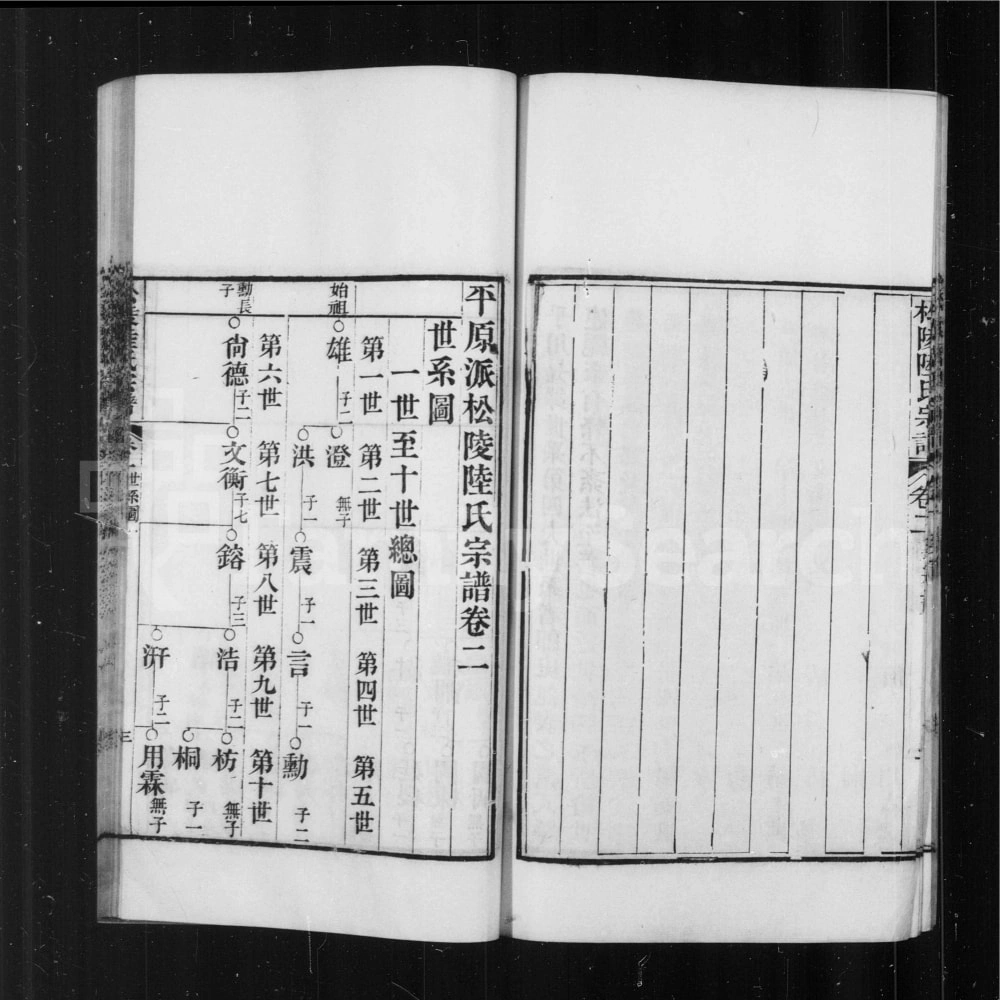 松陵陸氏宗譜
卷二
平原派松陵陸氏宗譜卷二
世系圖
一世至十世總圖
第一世 第二世 第三世 第四世 第五世
始祖 雄 子二 澄 無子
洪 子一 震 子一 言 子一 勳 子二
第六世 第七世 第八世 第九世 第十世
勳長子 尙德 子二 文衡 子七 鎔 子三 浩 子二 枋 無子
桐 子一
汧 子二 用霖 無子
世系圖
三